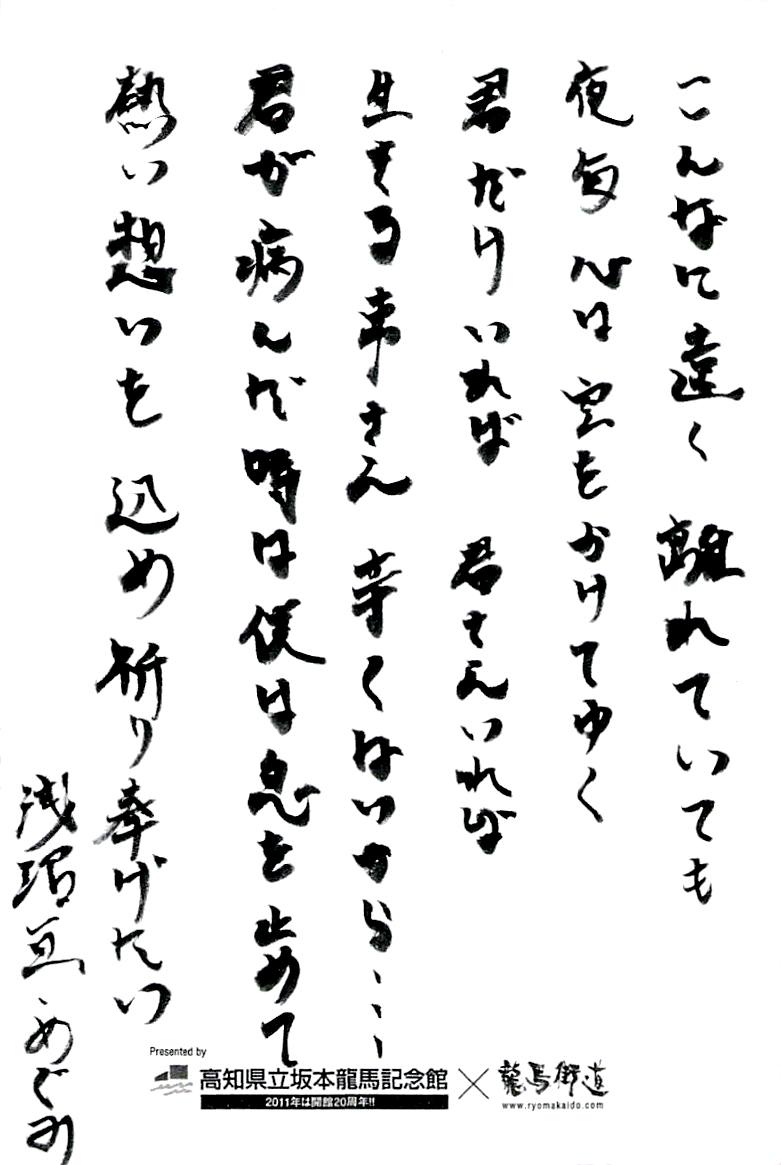 こんなに遠く 離れていても
夜毎 心は空をかけてゆく
君だけいれば 君さえいれば
生きる事さえ 辛くはないから…
君が病んだ時は僕は息を止めて
熱い想いを 込め祈り奉げたい
浅沼 めぐみ
Presented by
高知県立坂本龍馬記念館 × 龍馬街道
2011年は開館20周年!!
www.ryomakaido.com